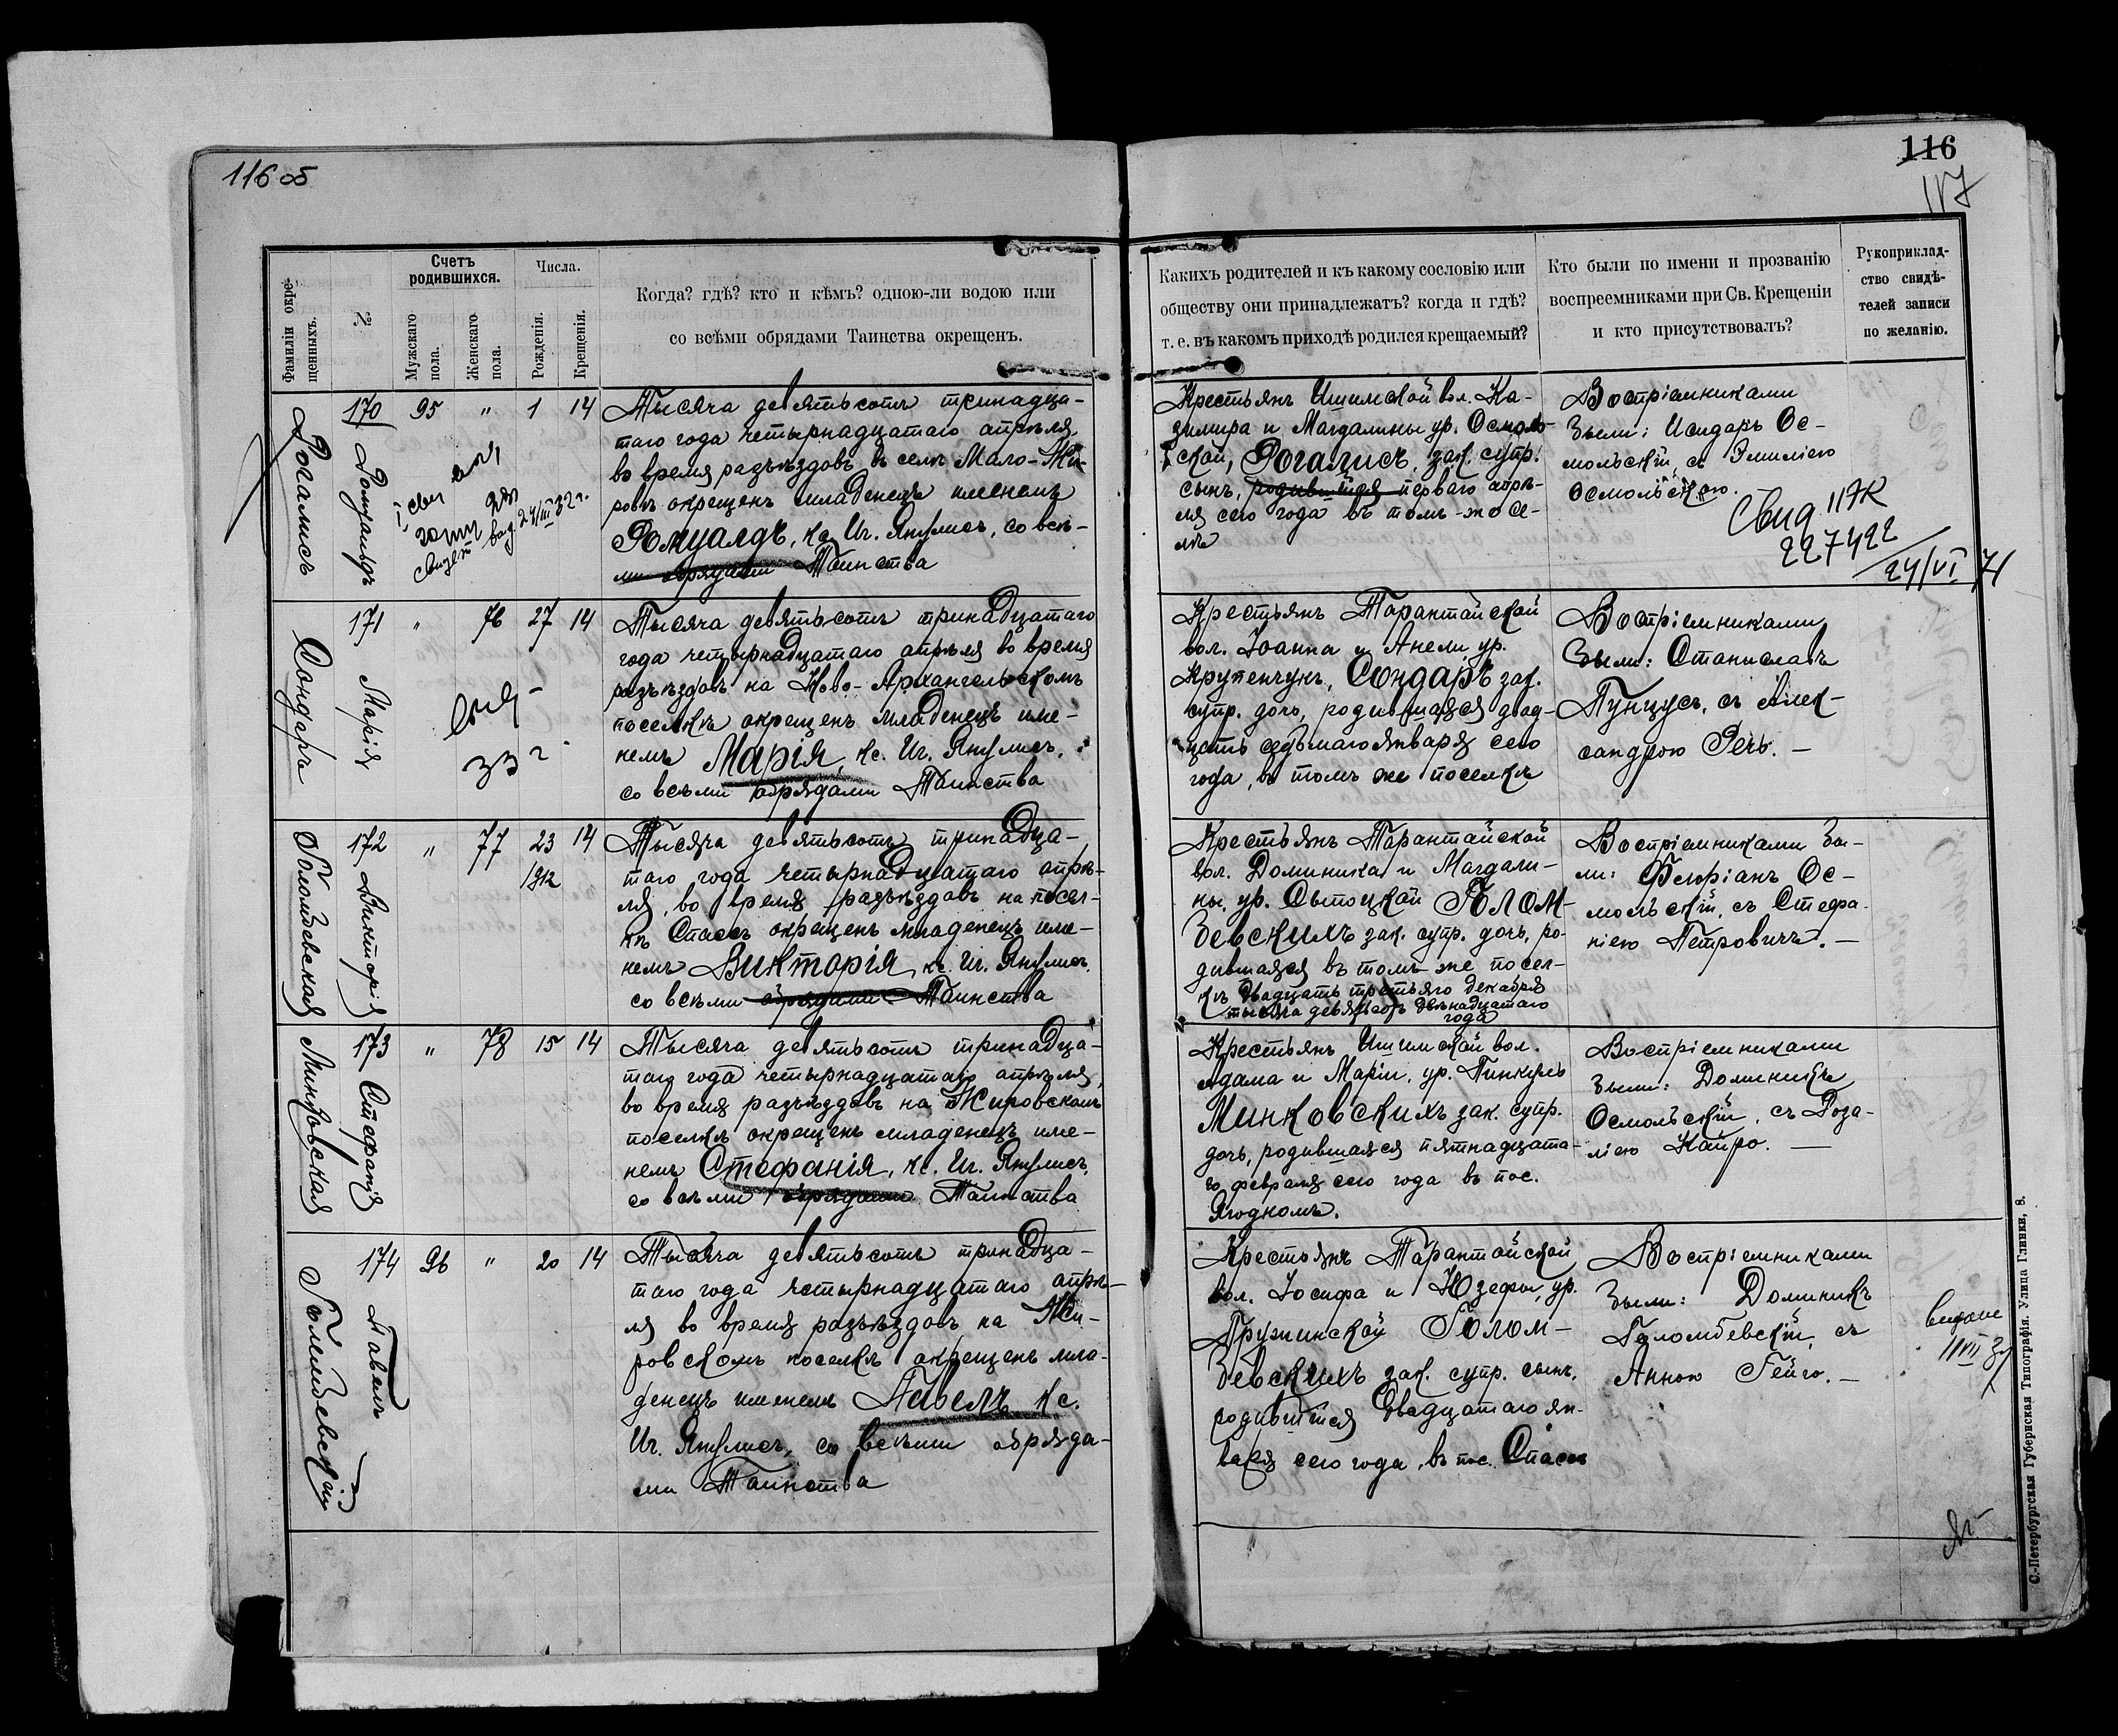 116 об
116
117
Фамиліи окре-
щенныхъ.
№
Счетъ
родившихся.
Мужскаго
пола.
Женскаго
пола.
Числа.
Рожденія.
Крещенія.
Когда? гдѣ? кто и кѣмъ? одною-ли водою или
со всѣми обрядами Таинства окрещенъ.
Какихъ родителей и къ какому сословію или
обществу они принадлежатъ? когда и гдѣ?
т. е. въ какомъ приходѣ родился крещаемый?
Кто были по имени и прозванію
воспреемниками при Св. Крещеніи
и кто присутствовалъ?
Рукоприклад-
ство свидѣ-
телей записи
по желанію.
Рогалисъ
170
Ромуальдъ
95
"
1
14
Тысяча девятьсотъ тринадца-
таго года четырнадцатаго апрѣля,
во время разъѣздовъ въ селѣ Мало-Жи-
ровѣ окрещенъ младенецъ именемъ
Ромуалдъ, кс. Иг. Янулисъ, со всѣ-
ми обрядами Таинства
Крестьянъ Ишимской вол. Ка-
зимира и Магдалины ур. Осмоль-
ской, Рогалисъ, зак. супр.
сынъ, родившійся перваго апрѣ-
ля сего года въ томъ-же се-
лѣ
Воспріемниками
были: Исидоръ Ос-
мольскій, съ Эмиліею
Осмольскою.
Свид II ЯК
227422
24/VI 71
Сондаръ
171
Марія
"
76
27
14
33 г
Тысяча девятьсотъ тринадцатаго
года четырнадцатаго апрѣля во время
разъѣздовъ на Ново-Архангельскомъ
поселкѣ окрещенъ младенецъ име-
немъ Марія, кс. Иг. Янулисъ,
со всѣми обрядами Таинства
Крестьянъ Тарантайской
вол. Іоанна и Анели, ур.
Крупенчукъ, Сондаръ зак.
супр. дочь, родившаяся двад-
цать седьмаго января сего
года, въ томъ же поселкѣ
Воспріемниками
были: Станиславъ
Пунцусъ, съ Алек-
сандрою Речь. —
Голомбевская
172
Викторія
"
77
23
14
Тысяча девятьсотъ тринадца-
таго года четырнадцатаго апрѣ-
ля, во время разъѣздовъ на посел-
кѣ Спасъ окрещенъ младенецъ име-
немъ Викторія, кс. Иг. Янулисъ,
со всѣми обрядами Таинства
Крестьянъ Тарантайской
вол. Доминика и Магдали-
ны, ур. Сытоцкой Голом-
бевскихъ зак. супр. дочь, ро-
дившаяся въ томъ же посел-
кѣ двадцать третьяго декабря
тысяча девятьсотъ двѣнадцатаго
года
Воспріемниками бы-
ли: Флоріанъ Ос-
мольскій, съ Стефа-
ніею Петровичъ. —
Минковская
173
Стефанія
"
78
15
14
Тысяча девятьсотъ тринадца-
таго года четырнадцатаго апрѣля,
во время разъѣздовъ на Жировскомъ
поселкѣ окрещенъ младенецъ име-
немъ Стефанія, кс. Иг. Янулисъ,
со всѣми обрядами Таинства
Крестьянъ Ишимской вол.
Адама и Маріи, ур. Пинкуль
Минковскихъ зак. супр.
дочь, родившаяся пятнадцата-
го февраля сего года въ пос.
Ягодномъ.
Воспріемниками
были: Доминикъ
Осмольскій, съ Роза-
ліею Кайро. —
Голомбевскій
174
Павелъ
96
"
20
14
Тысяча девятьсотъ тринадца-
таго года четырнадцатаго апрѣ-
ля во время разъѣздовъ на Жи-
ровскомъ поселкѣ окрещенъ мла-
денецъ именемъ Павелъ, кс.
Иг. Янулисъ, со всѣми обряда-
ми Таинства
Крестьянъ Тарантайской
вол. Іосифа и Юзефы, ур.
Пружинской Голом-
бевскихъ зак. супр. сынъ,
родившійся двадцатаго ян-
варя сего года, въ пос. Спасъ
Воспріемниками
были: Доминикъ
Голомбевскій, съ
Анною Гейго. —
С.-Петербургская Губернская Типографія. Улица Глинки, 8.